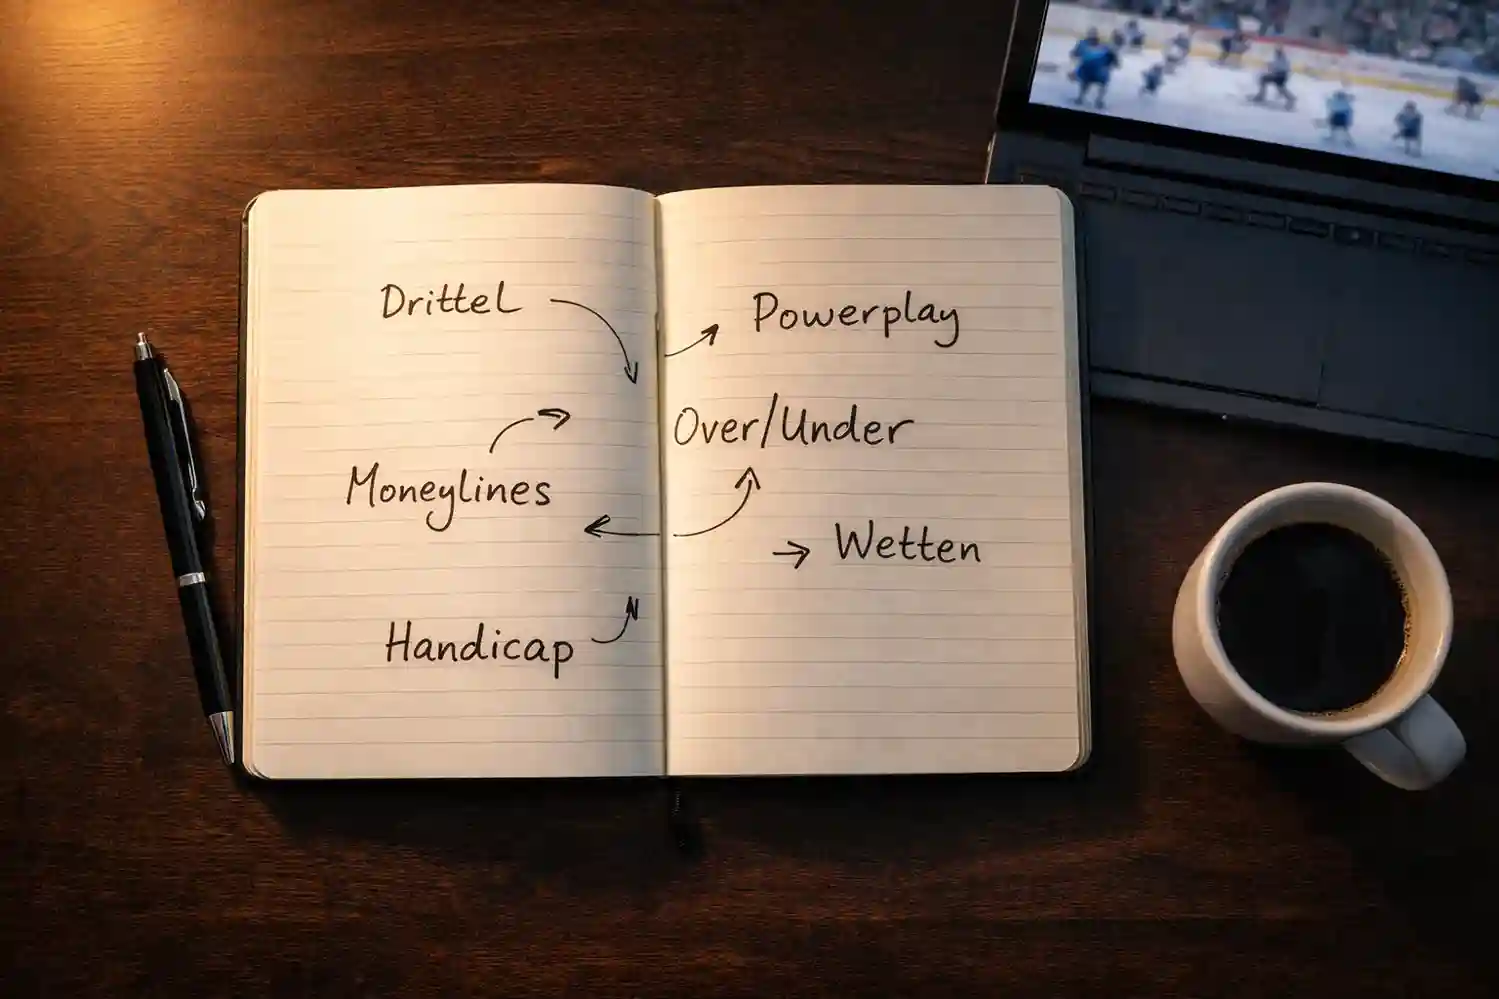 Drittel
Moneylines
Handicap
Powerplay
Over/Under
Wetten